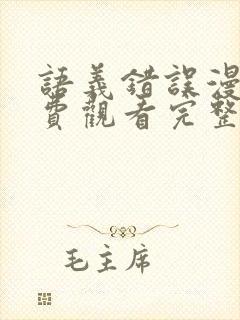 語義錯誤漫
費觀看完整
毛主席